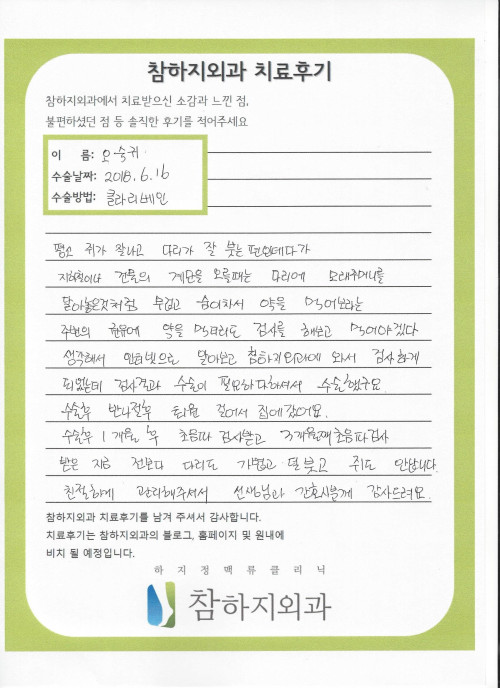 참하지외과 치료후기
참하지외과에서 치료받으신 소감과 느낀 점,
불편하셨던 점 등 솔직한 후기를 적어주세요
이 름: 오숙귀
수술날짜: 2018.6.16
수술방법: 클라리베인
평소 쥐가 잘나고 다리가 잘 붓는 편인데다가
지하철이나 건물의 계단을 오를때는 다리에 모래주머니를
달아놓은것처럼 무겁고 숨이차서 약을 먹어보라는
주변의 권유에 약을 먹더라도 검사를 해보고 먹어야겠다
생각해서 인터넷으로 알아보고 참하지외과에 와서 검사하게
되었는데 검사결과 수술이 필요하다하셔서 수술했구요
수술후 반나절후 퇴원 걸어서 집에갔어요.
수술후 1개월 후 초음파 검사받고 3개월째 초음파검사
받은 지금 전보다 다리도 가볍고 덜 붓고 쥐도 안납니다.
친절하게 관리해주셔서 선생님과 간호사분께 감사드려요.
참하지외과 치료후기를 남겨 주셔서 감사합니다.
치료후기는 참하지외과의 블로그, 홈페이지 및 원내에
비치 될 예정입니다.
하지정맥류클리닉
참하지외과